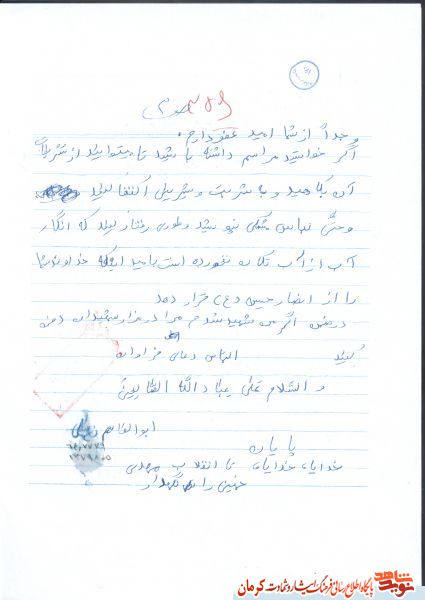 وجداً از شما امید عفو دارم.
اگر خواستید مراسم داشته باشید تا میتوانید از تشریفات
آن بکاهید و با شربت و شیرینی اکتفا کنید
و حتی لباس مشکی نپوشید و طوری رفتار کنید که انگار
آب از آب تکان نخورده است بامید اینکه خداوند شما
را از انصار حسین (ع) قرار دهد
در ضمن اگر من شهید شدم مرا در مزار شهیدان دفن
کنید التماس دعای فراوان
والسلام علی عباد الله الصالحین
ابوالقاسم
پایان
خدایا، خدایا، تا انقلاب مهدی
خمینی را نگهدار
نوید شاهد
پایگاه اطلاع رسانی فرهنگ ایثار و شهادت کرمان